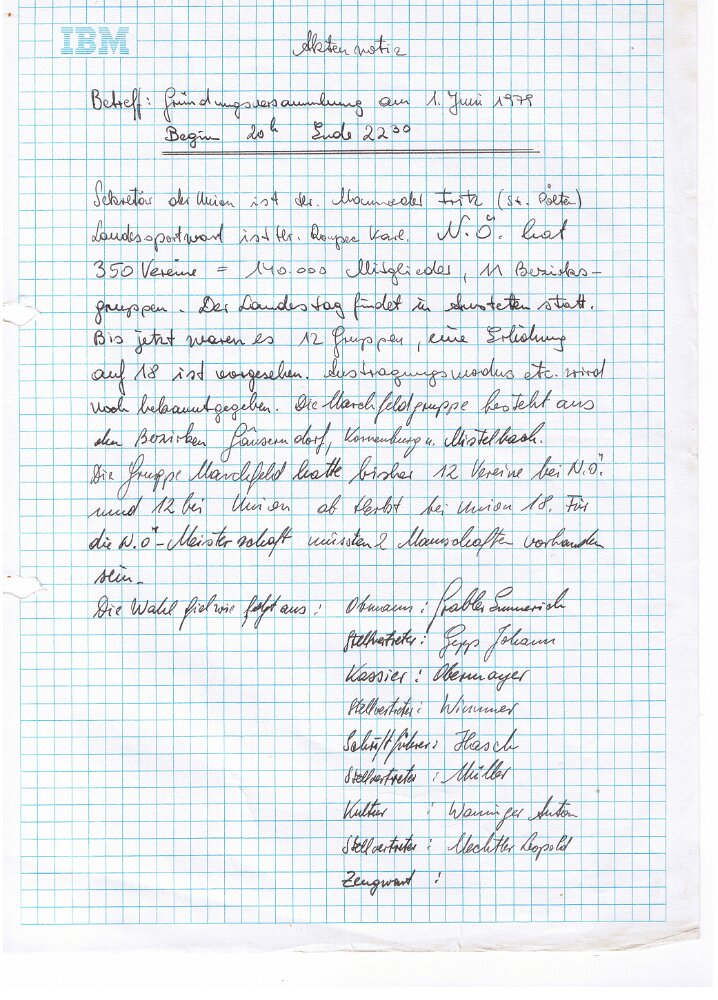 IBM
Aktennotiz
Betreff: Gründungsversammlung am 1. Juni 1979
Beginn 20h Ende 22 30
Sekretär der Union ist Hr. Fritz (St. Pölten)
Landessportwart ist Hr. Karl. N.Ö. hat
350 Vereine = 140.000 Mitglieder, 11 Bezirks-
gruppen. Der Landestag findet in Amstetten statt.
Bis jetzt waren es 12 Gruppen, eine Erhöhung
auf 18 ist vorgesehen. Austragungsmodus etc. wird
noch bekanntgegeben. Die Marchfeldgruppe besteht aus
den Bezirken Gänserndorf, Korneuburg u. Mistelbach.
Die Gruppe Marchfeld hatte bisher 12 Vereine bei N.Ö.
und 12 bei Union ab Herbst bei Union 18. Für
die N.Ö-Meisterschaft müssten 2 Mannschaften vorhanden
sein.
Die Wahl fiel wie folgt aus: Obmann: Grabler Emmerich
Stellvertreter: Gepp Johann
Kassier: Obermayer
Stellvertreter: Wimmer
Schriftführer: Hasch
Stellvertreter: Müller
Kultur : Waninger Anton
Stellvertreter: Mechtler Leopold
Zeugwart :